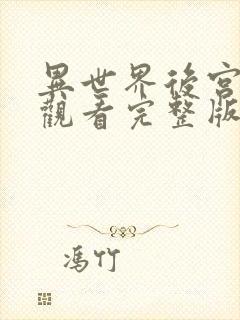 異世界後宮
觀看完整版
馮竹